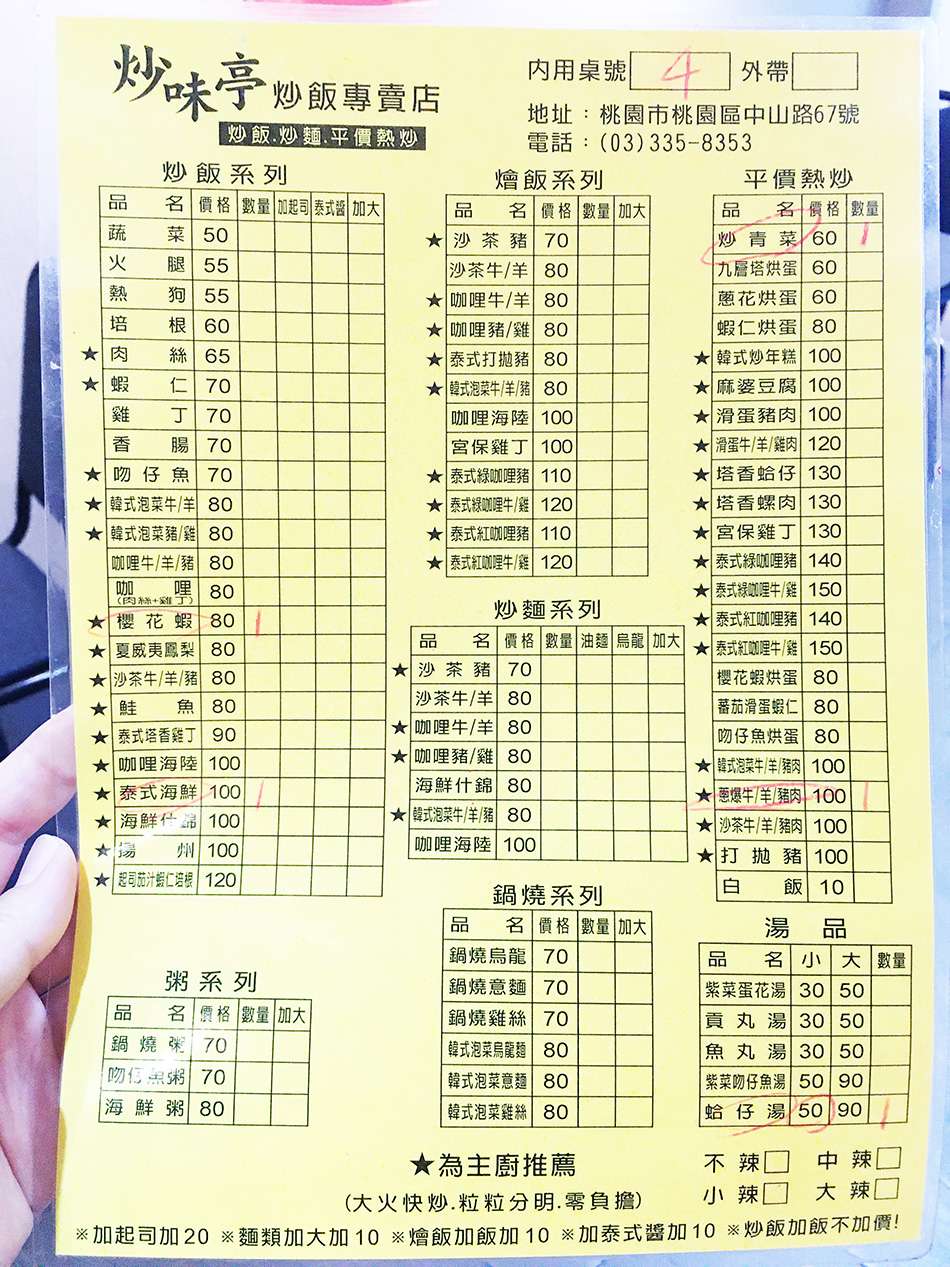 炒味亭 炒飯專賣店
炒飯.炒麵.平價熱炒
內用桌號 4 外帶
地址：桃園市桃園區中山路67號
電話：(03)335-8353
炒飯系列
品名 價格 數量 加起司 泰式醬 加大
蔬菜 50
火腿 55
熱狗 55
培根 60
★ 肉絲 65
★ 蝦仁 70
雞丁 70
香腸 70
★ 吻仔魚 70
★ 韓式泡菜牛/羊 80
★ 韓式泡菜豬/雞 80
咖哩牛/羊/豬 80
咖哩 80
(肉絲+雞丁)
★ 櫻花蝦 80 1
★ 夏威夷鳳梨 80
★ 沙茶牛/羊/豬 80
★ 鮭魚 80
★ 泰式塔香雞丁 90
★ 咖哩海陸 100
★ 泰式海鮮 100 1
★ 海鮮什錦 100
★ 揚州 100
★ 起司茄汁蝦仁培根 120
粥系列
品名 價格 數量 加大
鍋燒粥 70
吻仔魚粥 70
海鮮粥 80
燴飯系列
品名 價格 數量 加大
★ 沙茶豬 70
沙茶牛/羊 80
★ 咖哩牛/羊 80
★ 咖哩豬/雞 80
★ 泰式打拋豬 80
★ 韓式泡菜牛/羊/豬 80
咖哩海陸 100
宮保雞丁 100
★ 泰式綠咖哩豬 110
★ 泰式綠咖哩牛/雞 120
★ 泰式紅咖哩豬 110
★ 泰式紅咖哩牛/雞 120
炒麵系列
品名 價格 數量 油麵 烏龍 加大
★ 沙茶豬 70
沙茶牛/羊 80
★ 咖哩牛/羊 80
★ 咖哩豬/雞 80
海鮮什錦 80
★ 韓式泡菜牛/羊/豬 80
咖哩海陸 100
鍋燒系列
品名 價格 數量 加大
鍋燒烏龍 70
鍋燒意麵 70
鍋燒雞絲 70
韓式泡菜烏龍麵 80
韓式泡菜意麵 80
韓式泡菜雞絲 80
平價熱炒
品名 價格 數量
炒青菜 60 1
九層塔烘蛋 60
蔥花烘蛋 60
蝦仁烘蛋 80
★ 韓式炒年糕 100
★ 麻婆豆腐 100
★ 滑蛋豬肉 100
★ 滑蛋牛/羊/雞肉 120
★ 塔香蛤仔 130
★ 塔香螺肉 130
★ 宮保雞丁 130
★ 泰式綠咖哩豬 140
★ 泰式綠咖哩牛/雞 150
★ 泰式紅咖哩豬 140
★ 泰式紅咖哩牛/雞 150
櫻花蝦烘蛋 80
蕃茄滑蛋蝦仁 80
吻仔魚烘蛋 80
★ 韓式泡菜牛/羊/豬肉 100
★ 蔥爆牛/羊/豬肉 100 1
★ 沙茶牛/羊/豬肉 100
★ 打拋豬 100
白飯 10
湯品
品名 小 大 數量
紫菜蛋花湯 30 50
貢丸湯 30 50
魚丸湯 30 50
紫菜吻仔魚湯 50 90
蛤仔湯 50 90 1
★為主廚推薦
(大火快炒.粒粒分明.零負擔)
不辣□ 中辣□
小辣□ 大辣□
※加起司加20 ※麵類加大加10 ※燴飯加飯加10 ※加泰式醬加10 ※炒飯加飯不加價!